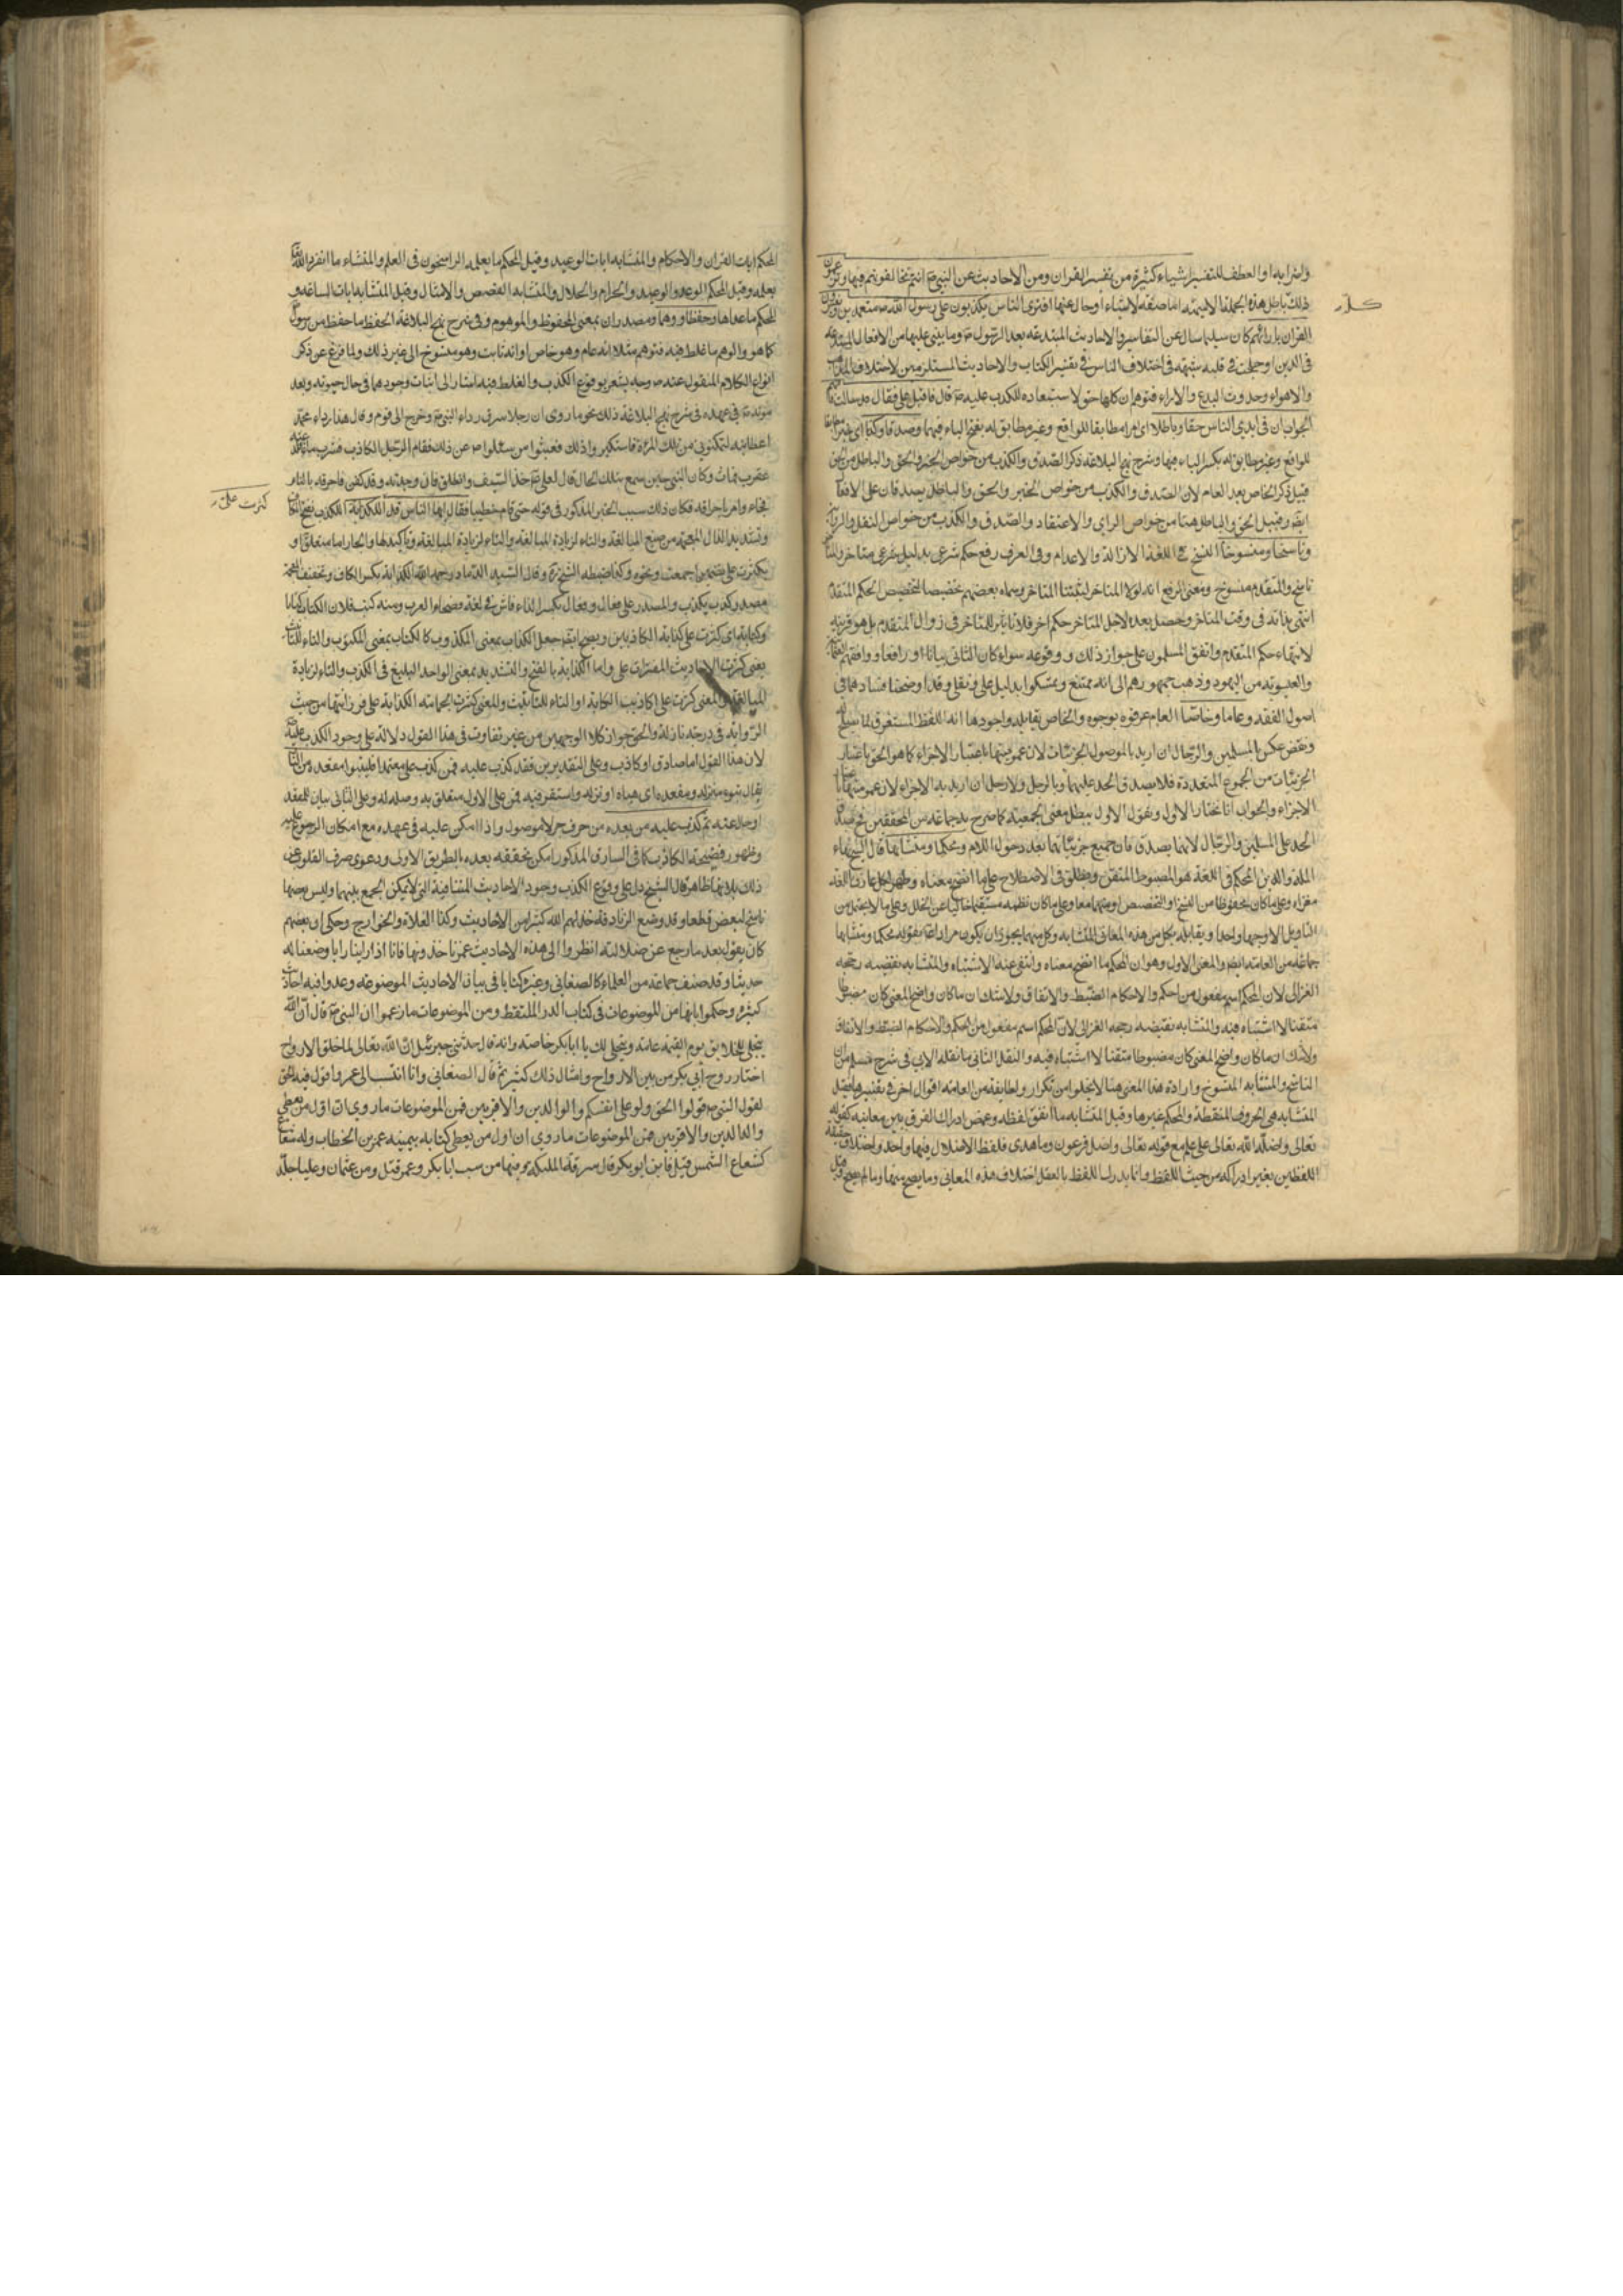 واضرابه او العطف للتفسير اشياء كثيرة من تفسير القران ومن الاحاديث عن النبي ص انتم تخالفونهم فيها وتزعمون
كله
ذلك باطل هذه الجملة الاسمية اما صفة لاشياء او حال عنها افترى الناس يكذبون على رسول الله ص متعمدين ويفسرون
القران بارائهم كان سليما سال عن التفاسير والاحاديث المبتدعة بعد الرسول ص وما يبنى عليها من الافعال المبتدعة
في الدين او حملت في قلبه شبهة في اختلاف الناس في تفسير الكتاب والاحاديث المستلزمين لاختلاف المذاهب
والاهواء وحدوث البدع والاراء فتوهم ان كلها حق لاستبعاده للكذب عليه ص قال فاقبل علي فقال قد سالت فافهم
الجواب ان في ايدي الناس حقا وباطلا اى امرا مطابقا للواقع وغير مطابق له بفتح الباء فيهما وصدقا وكذبا اى خبرا مطابقا
للواقع وغير مطابق له بكسر الباء فيهما وشرح نهج البلاغة ذكر الصدق والكذب من خواص الخبر والحق والباطل من الحق
قبيل ذكر الخاص بعد العام لان الصدق والكذب من خواص الخبر والحق والباطل يصدقان على الافعال
ايضا وقيل الحق والباطل هنا من خواص الراي والاعتقاد والصدق والكذب من خواص النقل والرواية
وناسخا ومنسوخا النسخ في اللغة الازالة والاعدام وفي العرف رفع حكم شرعي بدليل شرعي متاخر والمتاخر
ناسخ والمتقدم منسوخ ومعنى الرفع انه لولا المتاخر لثبتنا المتاخر وسماه بعضهم تخصيصا لتخصيص الحكم المتقدم
انتهى بذاته في وقت المتاخر وحصل بعده لاجل المتاخر حكم اخر فلا تاثير للمتاخر في زوال المتقدم بل هو قرينة
لانتهاء حكم المتقدم واتفق المسلمون على جواز ذلك ووقوعه سواء كان الثاني بيانا او رافعا ووافقهم
والعيسوية من اليهود وذهب جمهورهم الى انه ممتنع وتمسكوا بدليل عقلي ونقلي وقد اوضحنا فسادهما في
اصول الفقه وعاما وخاصا العام عرفوه بوجوه والخاص يقابله واجودها انه اللفظ المستغرق لما يصلح له
ونقض عكس بالمسلمين والرجال ان اريد بالموصول الجزئيات لان عمومهما باعتبار الاجزاء كما هو الحق باعتبار
الجزئيات من الجموع المتعددة فلا يصدق الحد عليهما وبالرجل ولا رجل ان اريد به الاجزاء لان عمومهما باعتبار
الاجزاء والجواب انا نختار الاول ونقول الاول يبطل معنى الجمعية كما صرح به جماعة من المحققين فح يصدق
الحد على المسلمين والرجال لانهما يصدقان جميع جزئياتهما بعد دخول اللام ومحكما ومتشابها قال الشيخ بهاء
الملة والدين المحكم في اللغة هو المضبوط المتقن ويطلق في الاصطلاح على ما اتضح معناه وظهر لكل عارف باللغة
مغزاه وعلى ما كان محفوظا من النسخ او التخصيص او منهما معا وعلى ما كان نظمه مستقيما خاليا عن الخلل وعلى ما لا يحتمل من
التاويل الا وجها واحدا ويقابله بكل من هذه المعاني المتشابه وكل منهما يجوز ان يكون مرادا ع بقوله محكما ومتشابها
جماعة من العامة ايضا والمعنى الاول وهو ان المحكم ما اتضح معناه وانتفى عنه الاشتباه والمتشابه نقيضه رجحه
الغزالي لان المحكم اسم مفعول من احكم والاحكام الضبط والاتقان ولا شك ان ما كان واضح المعنى كان مضبوطا
متقنا لا اشتباه فيه والمتشابه نقيضه رجحه الغزالي لان المحكم اسم مفعول من احكم والاحكام الضبط والاتقان
ولا شك ان ما كان واضح المعنى كان مضبوطا متقنا لا اشتباه فيه والنقل الثاني ما نقله الابي في شرح مسلم من ان
الناسخ والمتشابه المنسوخ وارادة هذا المعنى هنا لا يخلو من تكرار ولطايفة من العامة اقوال اخر في تفسيرها فقيل
المتشابه هي الحروف المنقطعة والمحكم غيرها وقيل المتشابه ما اتفق لفظه وغمض ادراك الفرق بين معانيه كقوله
تعالى واضله الله تعالى على علم مع قوله تعالى واضل فرعون وما هدى فلفظ الاضلال فيهما واحد واختلاف حقيقة
اللفظين بغير ادراكه من حيث اللفظ وانما يدرك اللفظ بالعقل اختلاف هذه المعاني وما يصح منها وما لم يصح وقيل
المحكم ايات القران والاحكام والمتشابه ايات الوعيد وقيل المحكم ما يعلمه الراسخون في العلم والمتشابه ما انفرد الله تعالى
بعلمه وقيل المحكم الوعد والوعيد والحرام والحلال والمتشابه القصص والامثال وقيل المتشابه ايات الساعة و
المحكم ما عداها وحفظا ووهما ومصدران بمعنى المحفوظ والموهوم وفي شرح نهج البلاغة الحفظ ما حفظ من رسول
كما هو والوهم ما غلط فيه فتوهم مثلا انه عام وهو خاص او انه ثابت وهو منسوخ الى غير ذلك ولما فرغ عن ذكر
انواع الكلام المنقول عنه ص وجه يشعر بوقوع الكذب والغلط فيه اشار الى اثبات وجودهما في حال حيوته وبعد
موته ص في عهده في شرح نهج البلاغة ذلك نحو ما روى ان رجلا سرق رداء النبي ص وخرج الى قوم وقال هذا رداء محمد
اعطانيه لتمكنوني من تلك المرءة فاستكبروا ذلك فبعثوا من سئلوا ص عن ذلك فقام الرجل الكاذب فشرب ماء فلدغته
عقرب فمات وكان النبي حين سمع بتلك الحال قال لعلي ع خذ السيف وانطلق فان وجدته وقد كفى فاحرقه بالنار
كثرت على
فجاء وامر باحراقه فكان ذلك سبب الخبر المذكور في قوله حتى قام خطيبا فقال ايها الناس قد الكذابة الكذب بفتح الكاف
وتشديد الذال المعجمة من صيغ المبالغة والتاء لزيادة المبالغة والتاء لزيادة المبالغة وتاكيدها والجار اما متعلق او
بكثرت على تضمين اجمعت ونحوه وكذا ضبطه الشيخ ره وقال السيد الداماد رحمه الله الكذابة بكسر الكاف وتخفيف المعجمة
مصدر كذب يكذب والمصدر على فعال وفعال بكسر الفاء فاش في لغة فصحاء العرب ومنه كتب فلان الكتاب كتابا
وكتابة اى كثرت على كذابة الكاذبين ويصح ايضا جعل الكذاب بمعنى المكذوب كالكتاب بمعنى المكتوب والتاء للتانيث
يعنى كثرت الاحاديث المفتريات على واما الكذابة بالفتح والتشديد بمعنى الواحد البليغ في الكذب والتاء لزيادة
المبالغة والمعنى كثرت على اكاذيب الكذابة او التاء للتانيث والمعنى كثرت الجماعة الكذابة على فوزانتها من حيث
الرواية في درجة نازلة والحق جواز كلا الوجهين من غير تفاوت في هذا القول دلالة على وجود الكذب عليه ص
لان هذا القول اما صادق او كاذب وعلى التقديرين فقد كذب عليه فمن كذب على متعمدا فليتبوا مقعده من النار
يقال تبوء منزله ومقعده اى هياه او نزله واستقر فيه فمن على الاول متعلق به وصلة له وعلى الثاني بيان للمقعد
او حال عنه ثم كذب عليه من بعده من حرف جر لا موصول واذا امكن عليه في عهده مع امكان الرجوع اليه
وظهور فضيحة الكاذب كما في السارق المذكور امكن تحققه بعده بالطريق الاولى ودعوى صرف القلوب عن
ذلك بلا بينة ظاهر قال الشيخ دل على وقوع الكذب وجود الاحاديث المتنافية التي لا يمكن الجمع بينهما وليس بعضها
ناسخ لبعض قطعا وقد وضع الزنادقة خذلهم الله كثيرا من الاحاديث وكذا الغلاة والخوارج وحكى ان بعضهم
كان يقول بعد ما رجع عن ضلالته انظروا الى هذه الاحاديث عمن تاخذونها فانا اذا راينا رايا وضعنا له
حديثا وقد صنف جماعة من العلماء كالصغاني وغيره كتابا في بيان الاحاديث الموضوعة وعدوا فيه احاديث
كثيرة وحكموا بانها من الموضوعات في كتاب الدر الملتقط ومن الموضوعات ما زعموا ان النبي ص قال ان الله
يتجلى للخلايق يوم القيمة عامة ويتجلى لك يا ابا بكر خاصة وانه قال حدثني جبرئيل ان الله تعالى لما خلق الارواح
اختار روح ابي بكر من بين الارواح وامثال ذلك كثير ثم قال الصغاني وانا انتسب الى عمر واقول فيه الحق
لقول النبي ص قولوا الحق ولو على انفسكم والوالدين والاقربين فمن الموضوعات ما روي ان اول من يعطى
والدالدين والاقربين فمن الموضوعات ما روي ان اول من يعطى كتابه بيمينه عمر بن الخطاب وله شعاع
كشعاع الشمس قيل فاين ابو بكر قال سرقته الملئكة ومنها من سب ابا بكر وعمر قتل ومن عثمان وعليا جلد